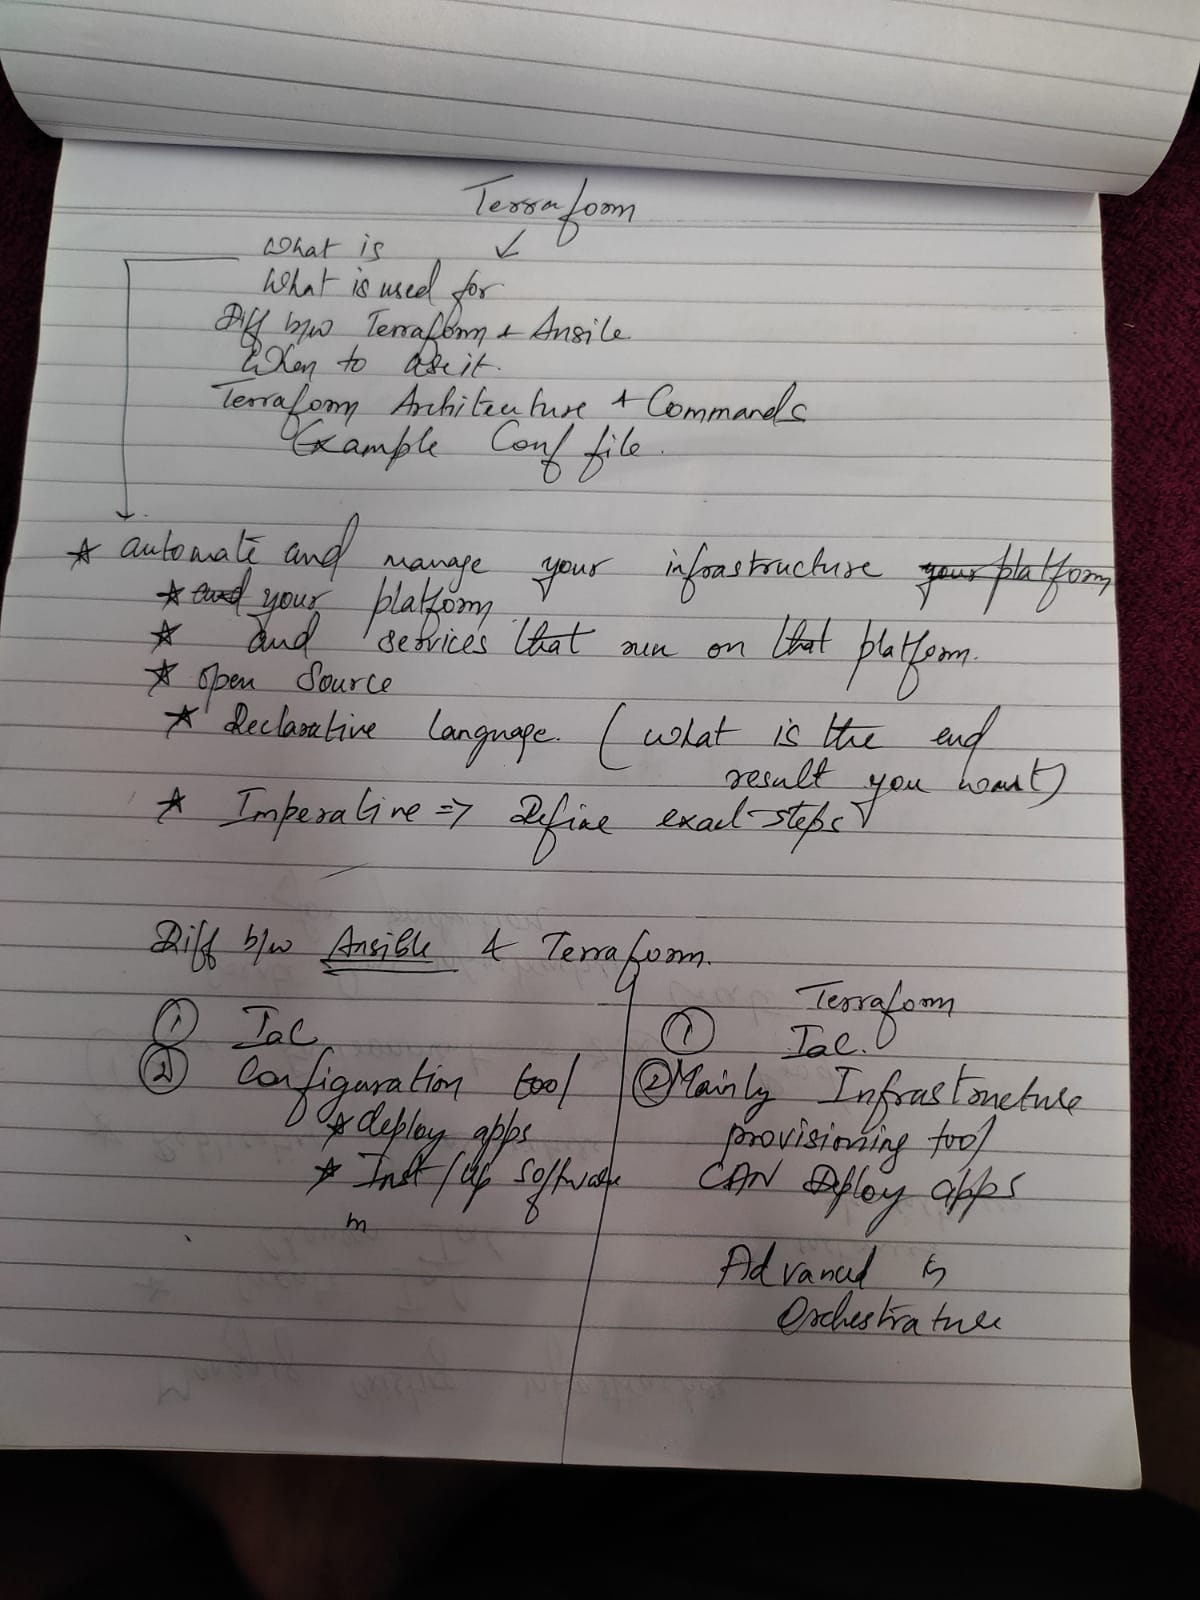 Terraform
What is ↙
What is used for
Diff b/w Terraform & Ansile
When to use it.
Terraform Architecture & Commands
Example Conf file.
* automate and manage your infrastructure your platform
* and your platform
* and services that run on that platform.
* open source
* Declarative language. (what is the end
result you want)
* Imperative => Define exact steps
Diff b/w Ansible & Terraform.
Terraform
① IaC ① IaC.
② Configuration tool ② Mainly Infrastructure
* deploy apps provisioning tool
* Inst/up software CAN Deploy apps
m
Advanced in
Orchestrature